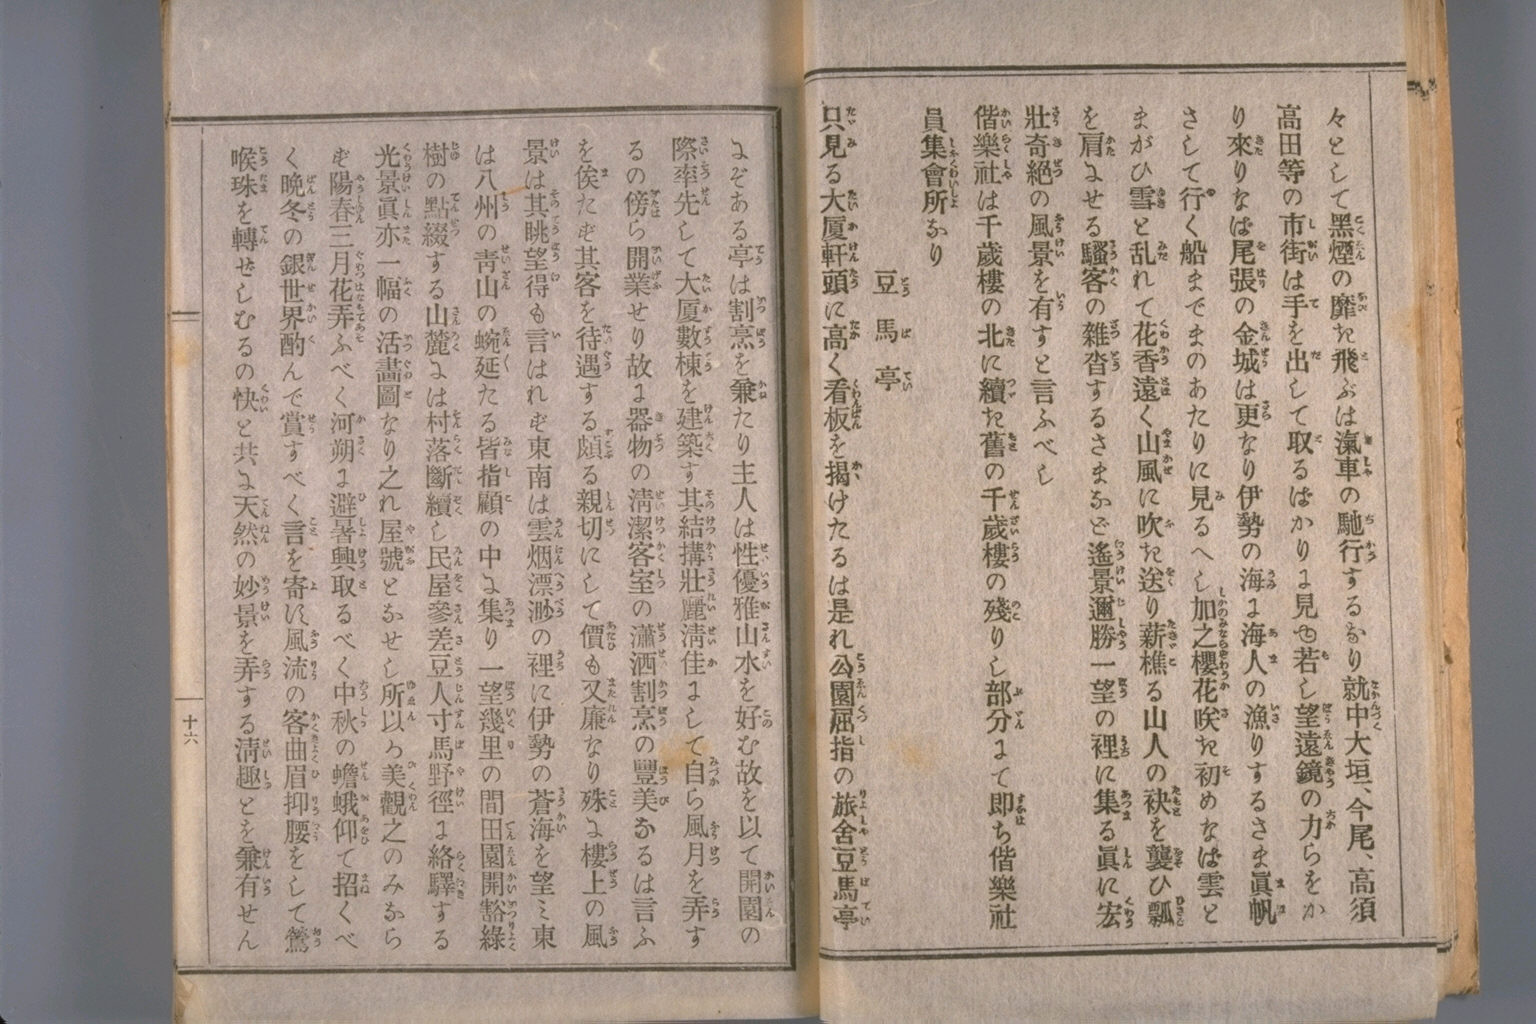 々として黑煙の靡き飛ぶは滊車の馳行するなり就中大垣、今尾、高須
高田等の市街は手を出して取るばかりに見ゆ若し望遠鏡の力らをか
り來りなば尾張の金城は更なり伊勢の海に海人の漁りするさま眞帆
さして行く船までまのあたりに見るへし加之櫻花咲き初めなば雲と
まがひ雪と乱れて花香遠く山風に吹き送り薪樵る山人の袂を襲ひ瓢
を肩にせる騷客の雜沓するさまなど遙景邇勝一望の裡に集る眞に宏
壯奇絕の風景を有すと言ふべし
偕樂社は千歲樓の北に續き舊の千歲樓の殘りし部分にて即ち偕樂社
員集會所なり
豆馬亭
只見る大厦軒頭に高く看板を揭けたるは是れ公園屈指の旅舍豆馬亭
にぞある亭は割烹を兼たり主人は性優雅山水を好む故を以て開園の
際率先して大厦數棟を建築す其結搆壯麗淸佳にして自ら風月を弄す
るの傍ら開業せり故に器物の淸潔客室の瀟洒割烹の豐美なるは言ふ
を俟たず其客を待遇する頗る親切にして價も又廉なり殊に樓上の風
景は其眺望得も言はれず東南は雲烟漂渺の裡に伊勢の蒼海を望ミ東
は八州の靑山の蜿延たる皆指顧の中に集り一望幾里の間田園開豁綠
樹の點綴する山麓には村落斷續し民屋參差豆人寸馬野徑に絡驛する
光景眞亦一幅の活畵圖なり之れ屋號となせし所以ろ美觀之のみなら
ず陽春三月花弄ふべく河朔に避暑興取るべく中秋の蟾蛾仰て招くべ
く晩冬の銀世界酌んで賞すべく言を寄に風流の客曲眉抑腰をして鶯
喉珠を轉せしむるの快と共に天然の妙景を弄する淸趣とを兼有せん
十六